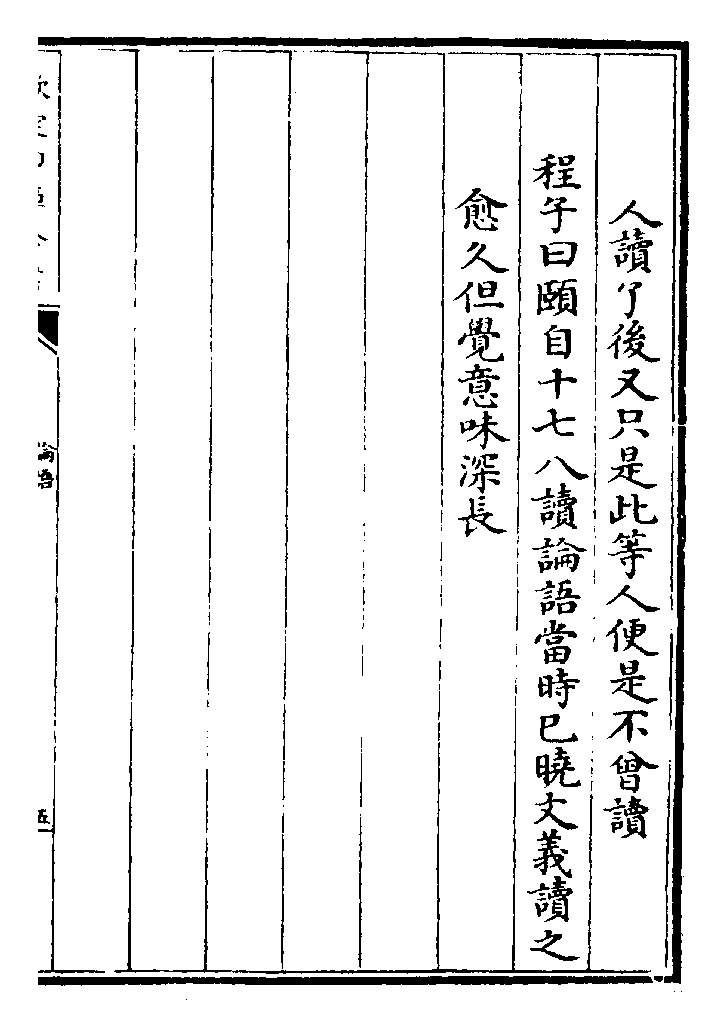 人讀了後又只是此等人便是不曾讀
程子曰頤自十七八讀論語當時已曉文義讀之
愈久但覺意味深長
論語
五